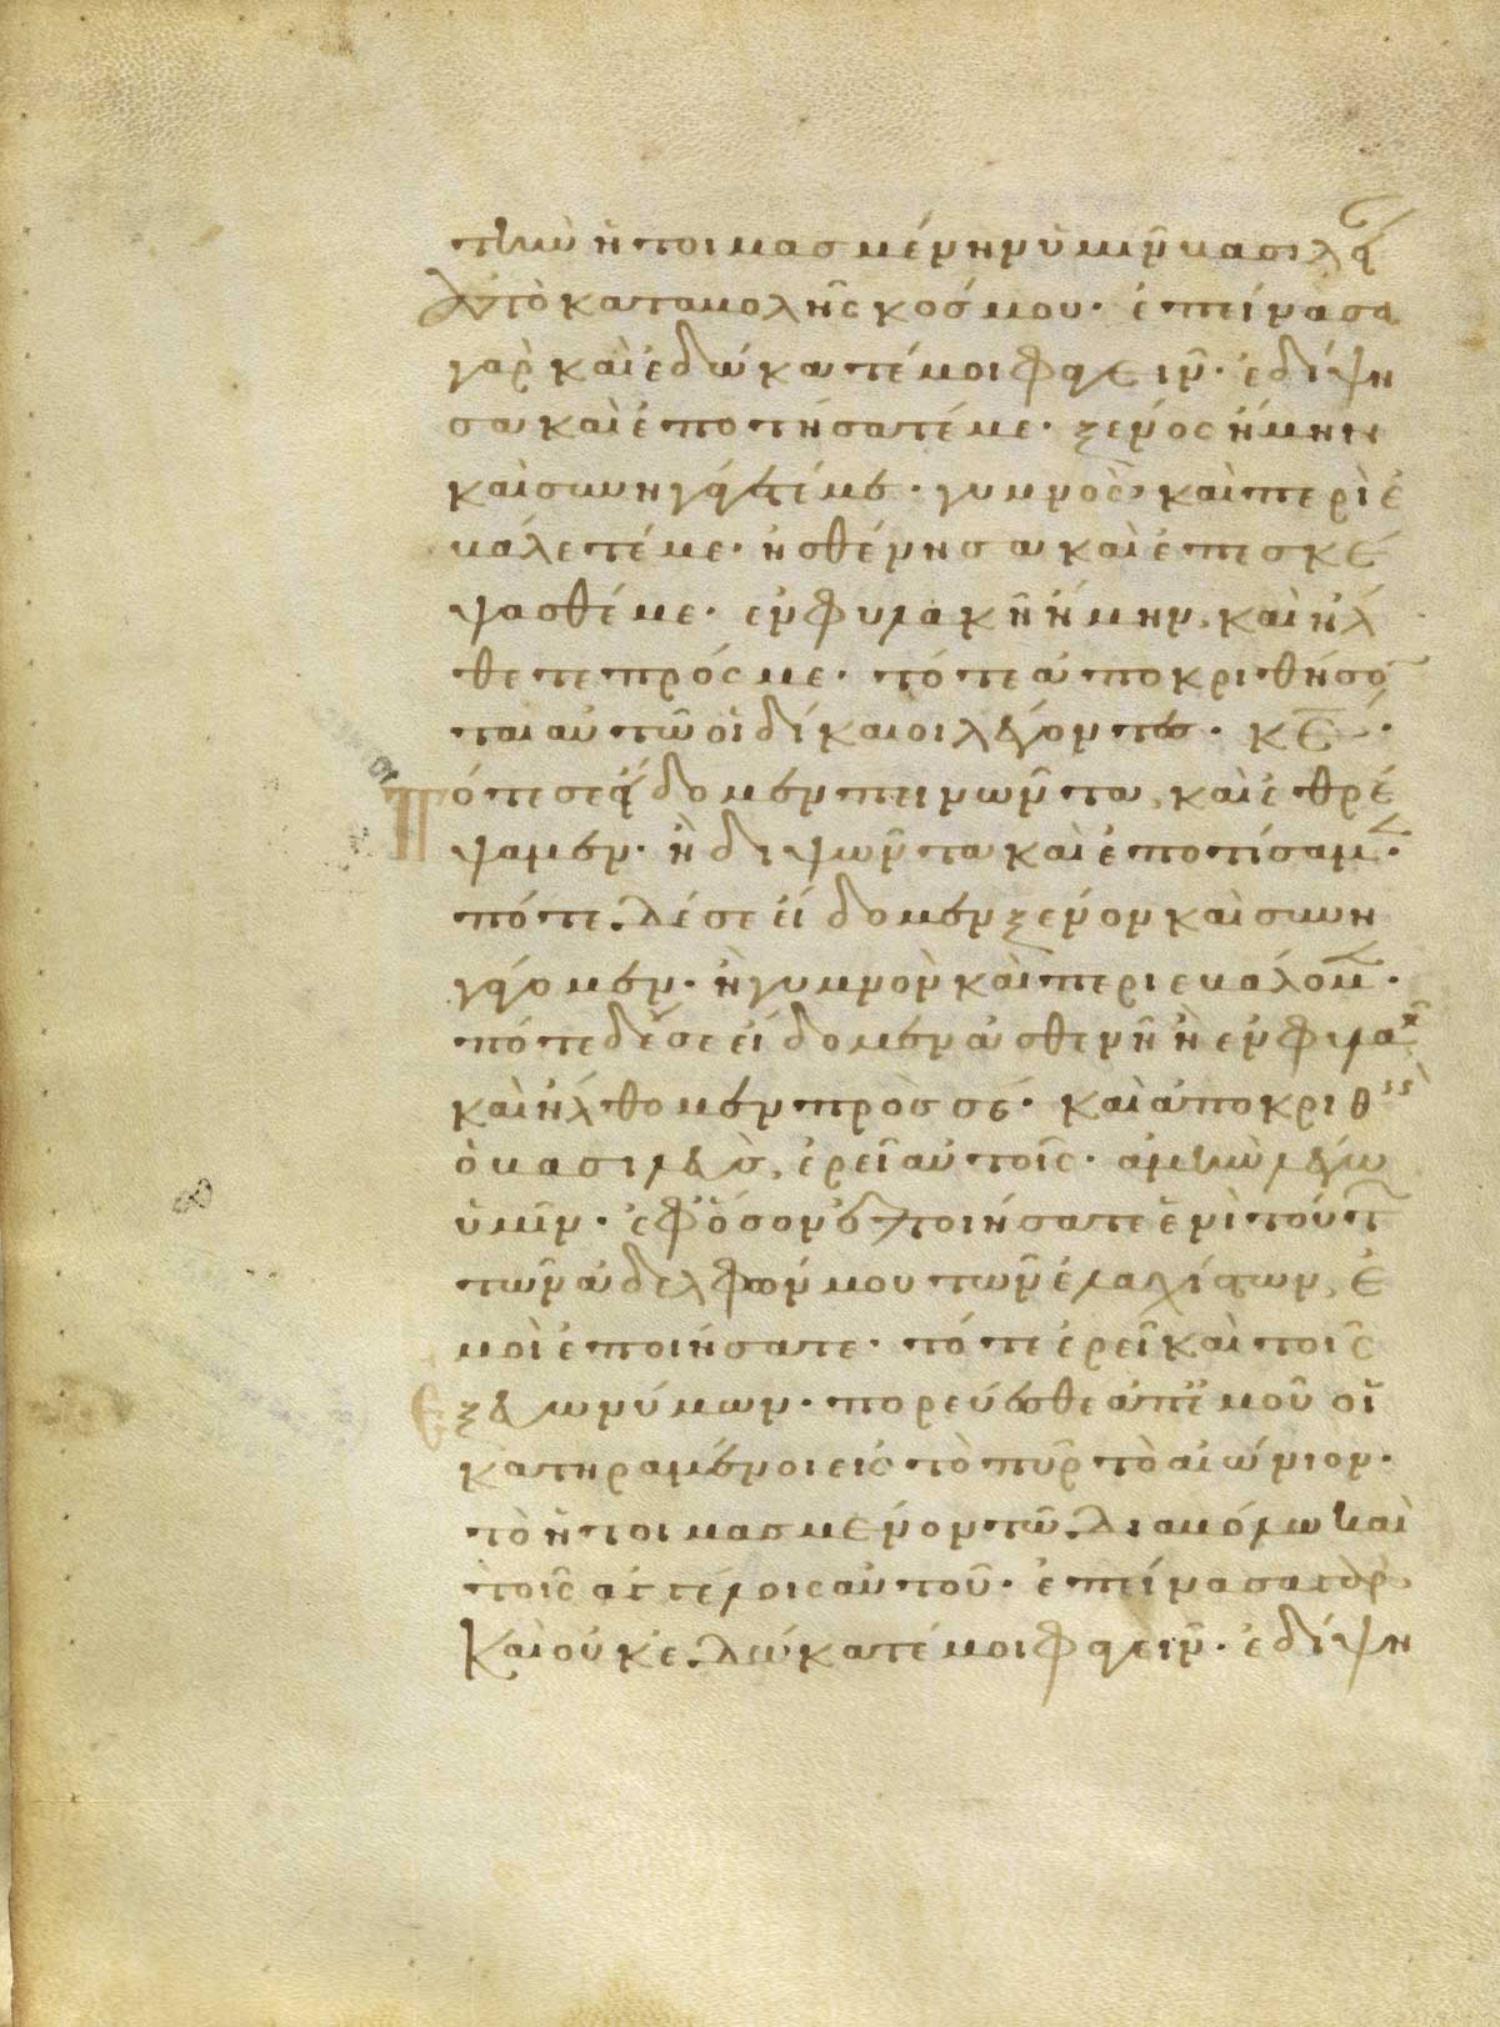 τὴν ἡτοιμασμένην ὑμῖν βασιλεί
ἀπὸ καταβολῆς κόσμου· ἐπείνασα
γὰρ καὶ ἐδώκατέ μοι φαγεῖν· ἐδίψη
σα καὶ ἐποτήσατέ με· ξένος ἤμην
καὶ συνηγάγετέ με· γυμνὸς καὶ περιε
βάλετέ με· ἠσθένησα καὶ ἐπεσκέ
ψασθέ με· ἐν φυλακῆ ἤμην, καὶ ἤλ
θετε πρός με· τότε ἀποκριθήσο
ται αὐτῶ οἱ δίκαιοι λέγοντες· κε·
Πότε σε εἴδομεν πεινῶντα, καὶ ἐθρέ
ψαμεν· ἢ διψῶντα καὶ ἐποτίσαμ·
πότε δέ σε εἴδομεν ξένον καὶ συνη
γάγομεν· ἢ γυμνὸν καὶ περιεβάλομ·
πότε δέ σε εἴδομεν ἀσθενῆ ἢ ἐν φυλακῆ
καὶ ἤλθομεν πρὸς σέ· καὶ ἀποκριθεὶς
ὁ βασιλεὺς, ἐρεῖ αὐτοῖς· ἀμὴν λέγω
ὑμῖν· ἐφ' ὅσον ἐποιήσατε ἑνὶ τούτ
τῶν ἀδελφῶν μου τῶν ἐλαχίστων, ἐ
μοὶ ἐποιήσατε· τότε ἐρεῖ καὶ τοῖς
Ἐξ εὐωνύμων· πορεύεσθε ἀπ' ἐμοῦ οἱ
κατηραμένοι εἰς τὸ πῦρ τὸ αἰώνιον·
τὸ ἡτοιμασμένον τῶ διαβόλω καὶ
τοῖς ἀγγέλοις αὐτοῦ· ἐπείνασα γὰρ
καὶ οὐκ ἐδώκατέ μοι φαγεῖν· ἐδίψη